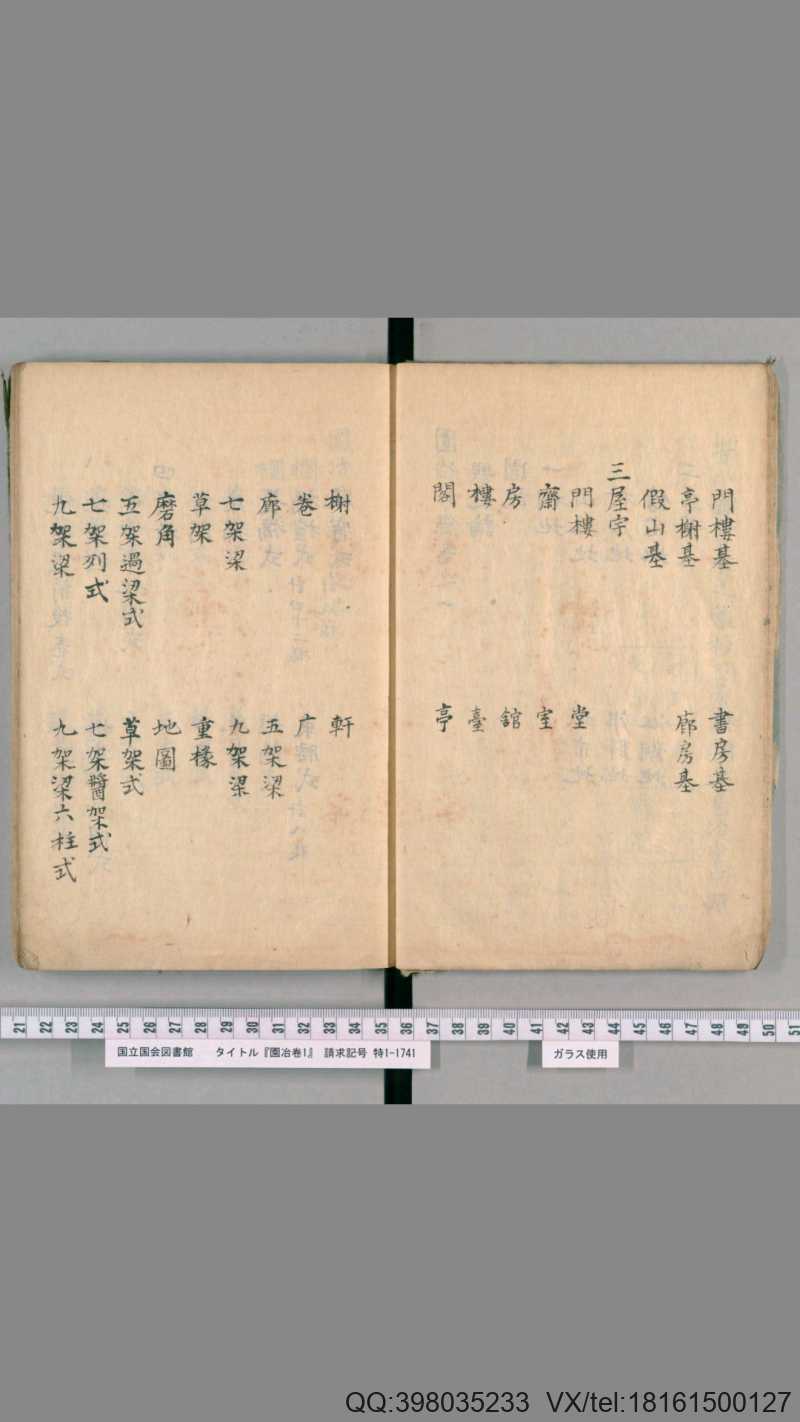 門樓基　書房基
亭榭基　廊房基
假山基
三屋宇
門樓　堂
齋　室
房　舘
樓　臺
閣　亭
榭　軒
卷　广
廊　五架梁
七架梁　九架梁
草架　重椽
磨角　地圖
五架過梁式　草架式
七架列式　七架醬架式
九架梁　九架梁六柱式
21 22 23 24 25 26 27 28 29 30 31 32 33 34 35 36 37 38 39 40 41 42 43 44 45 46 47 48 49 50 51
国立国会図書館　タイトル『園冶巻1』　請求記号 特1-1741
ガラス使用
QQ:398035233 VX/tel:18161500127